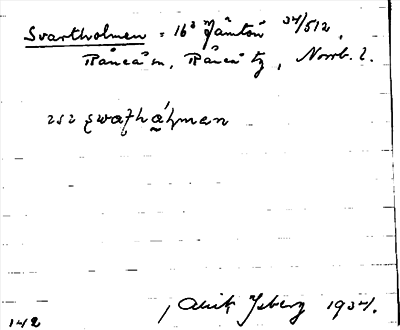 Svartholmen = 16² Jämtön 34/512,
Råneå sn, Råneå tg, Norrb. l.
252 swaʈhåɭman
Alrik Isberg 1934.
142